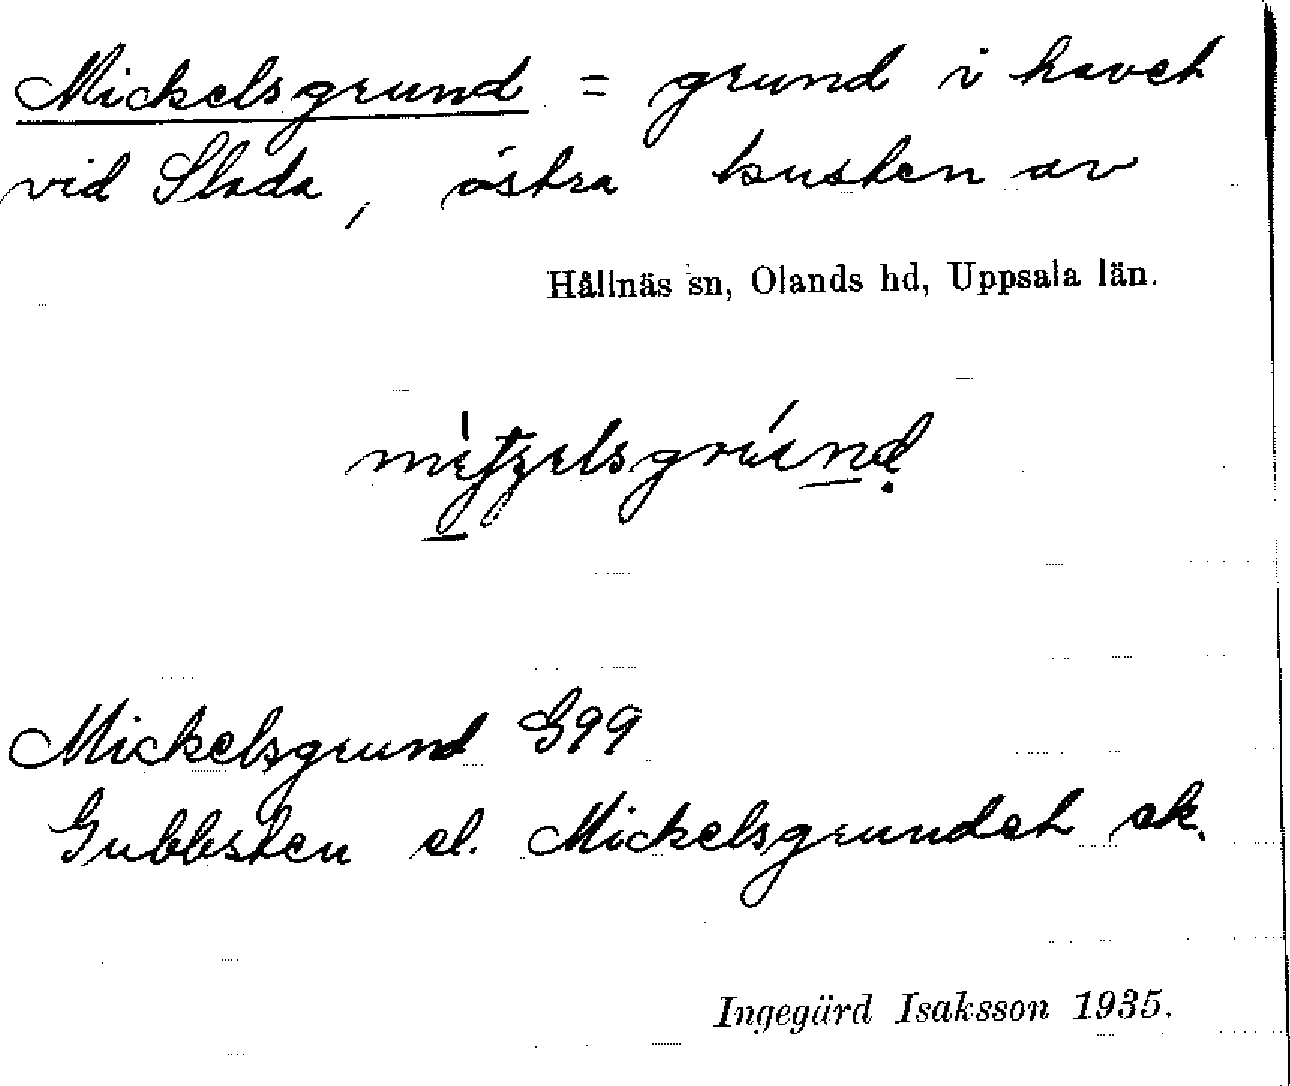 Mickelsgrund = grund i havet
vid Slada, östra kusten av
Hållnäs sn, Olands hd, Uppsala län.
Mickelsgrund G99
Gubbsten el. Mickelsgrundet sk.
Ingegärd Isaksson 1935.